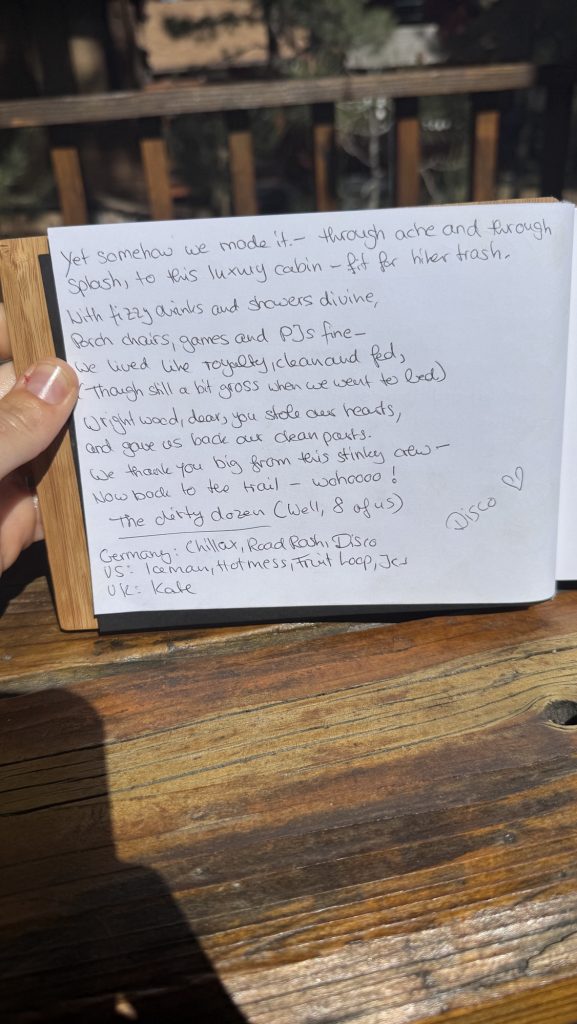 Yet somehow we made it – through ache and through
splash, to this luxury cabin – fit for hiker trash.
With fizzy drinks and showers divine,
Porch chairs, games and PJs fine –
We lived like royalty, clean and fed,
(Though still a bit gross when we went to bed)
Wrightwood, dear, you stole our hearts,
and gave us back our clean parts.
We thank you big from this stinky crew –
Now back to the trail – wohoooo!
The dirty dozen (Well, 8 of us)
Disco ♡
Germany: Chillax, Road Rash, Disco
US: Iceman, Hotmess, Fruit Loop, Jes
UK: Kate